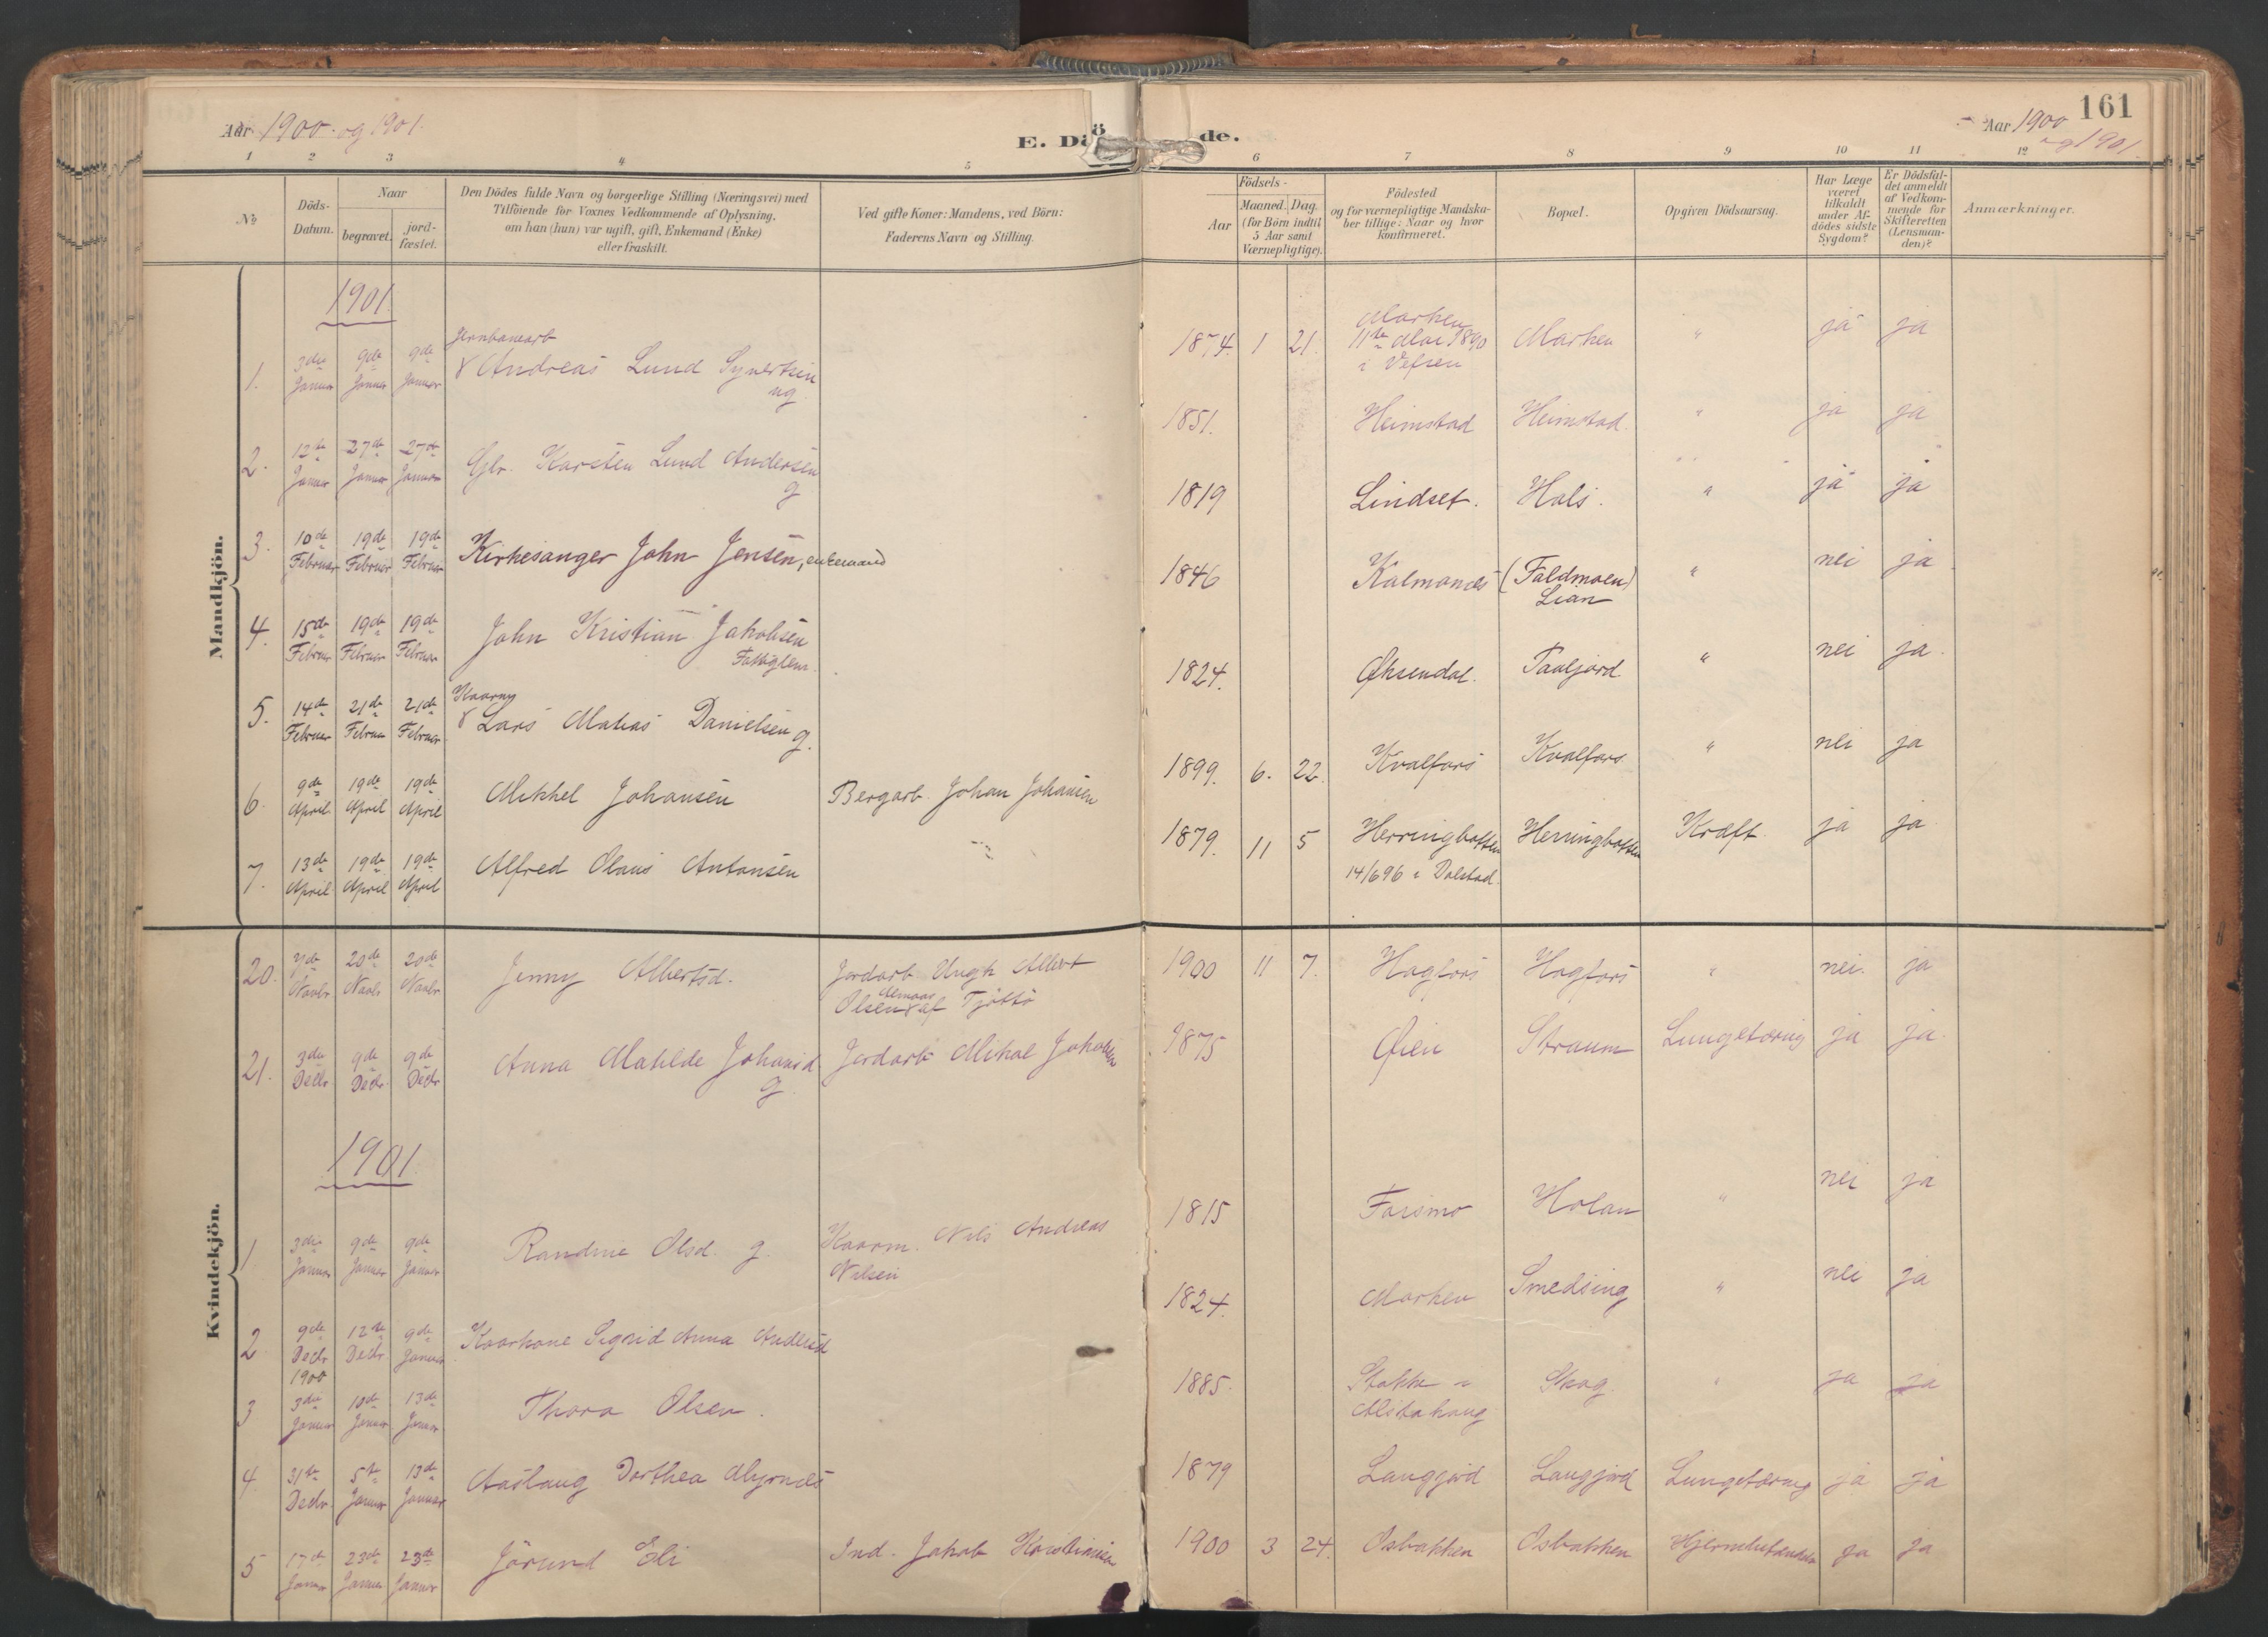 Aar 1900 og 1901.
E. Dö de.
Aar 1900 og 1901.
161
1 2 3 4 5 6 7 8 9 10 11 12
No
Döds-Datum.
Naar
begravet.
jord-fæstet.
Den Dödes fulde Navn og borgerlige Stilling (Næringsvei) med
Tilföiende for Voxnes Vedkommende af Oplysning,
om han (hun) var ugift, gift, Enkemand (Enke)
eller fraskilt.
Ved gifte Koner: Mandens, ved Börn:
Faderens Navn og Stilling.
Födsels-
Aar
Maaned. Dag.
(for Börn indtil
5 Aar samt
Værnepligtige).
Födested
og for værnepligtige Mandska-
ber tillige: Naar og hvor
konfirmeret.
Bopæl.
Opgiven Dödsaarsag.
Har Læge
været
tilkaldt
under Af-
dödes sidste
Sygdom?
Er Dödsfal-
det anmeldt
af Vedkom-
mende for
Skifteretten
(Lensman-
den)?
Anmærkninger.
Mandkjön.
1901
1. 3die Januar 9de Januar 9de Januar Jernbanearb Andreas Lund Syvertsen ug 1874. 1 21. Marken 11te Mai 1890 i Vefsen Marken " ja ja
2. 12te Januar 27de Januar 27de Januar Glr. Karsten Lund Andersen g 1851. Heimstad Heimstad. " ja ja
3. 10de Februar 19de Februar 19de Februar Kirkesanger John Jensen, enkemand 1819 Lindset. Hals. " ja ja
4. 15de Februar 19de Februar 19de Februar John Kristian Jakobsen Fattiglem. 1846 Kalmonæs (Faldmoen) Lian " nei ja
5. 14de Februar 21de Februar 21de Februar Kaarm Lars Matias Danielsen g. 1824. Øksendal. Paaljord. " nei ja.
6. 9de April 19de April 19de April Mikkel Johansen Bergarb. Johan Johansen 1899. 6. 22. Kvalfors Kvalfors " nei ja
7. 13de April 19de April 19de April Alfred Olaus Antonsen 1879. 11 5 Herringbotten 14/6 96 i Dolstad. Herringbotten Kræft. ja ja
Kvindekjön.
20. 7de Novbr 20de Novbr 20de Novbr Jenny Albertsd. Jordarb. Ungk Albert Olsen Almaas af Tjöttö 1900 11 7. Hagfors Hagfors " nei. ja
21. 3die Decbr 9de Decbr. 9de Decbr Anna Matilde Johansd. g Jordarb Mikal Johansen 1875 Øien Straum Lungetæring ja ja.
1901
1 3die Januar 9de Januar 9de Januar Randine Olsd. g. Kaarm. Nils Andreas Nilsen 1815 Forsmo Holan " nei ja
2 9de Decbr 1900 12te Decbr 9de Januar Kaarkone Sigrid Anna Andersd 1824. Marken Smedseng " nei ja
3 3die Januar 10de Januar 13de Januar Thora Olsen. 1885. Stokke i Alstahaug Skog " ja ja
4. 31te Decbr. 5te Januar 13de Januar Aaslaug Dorthea Myrnes 1879 Langjord Langjord Lungetæring ja ja
5 17de Januar 23de Januar 23de Januar Jörund Eli Ind. Jakob Kristiansen 1900 3 24. Osbakken Osbakken ja ja